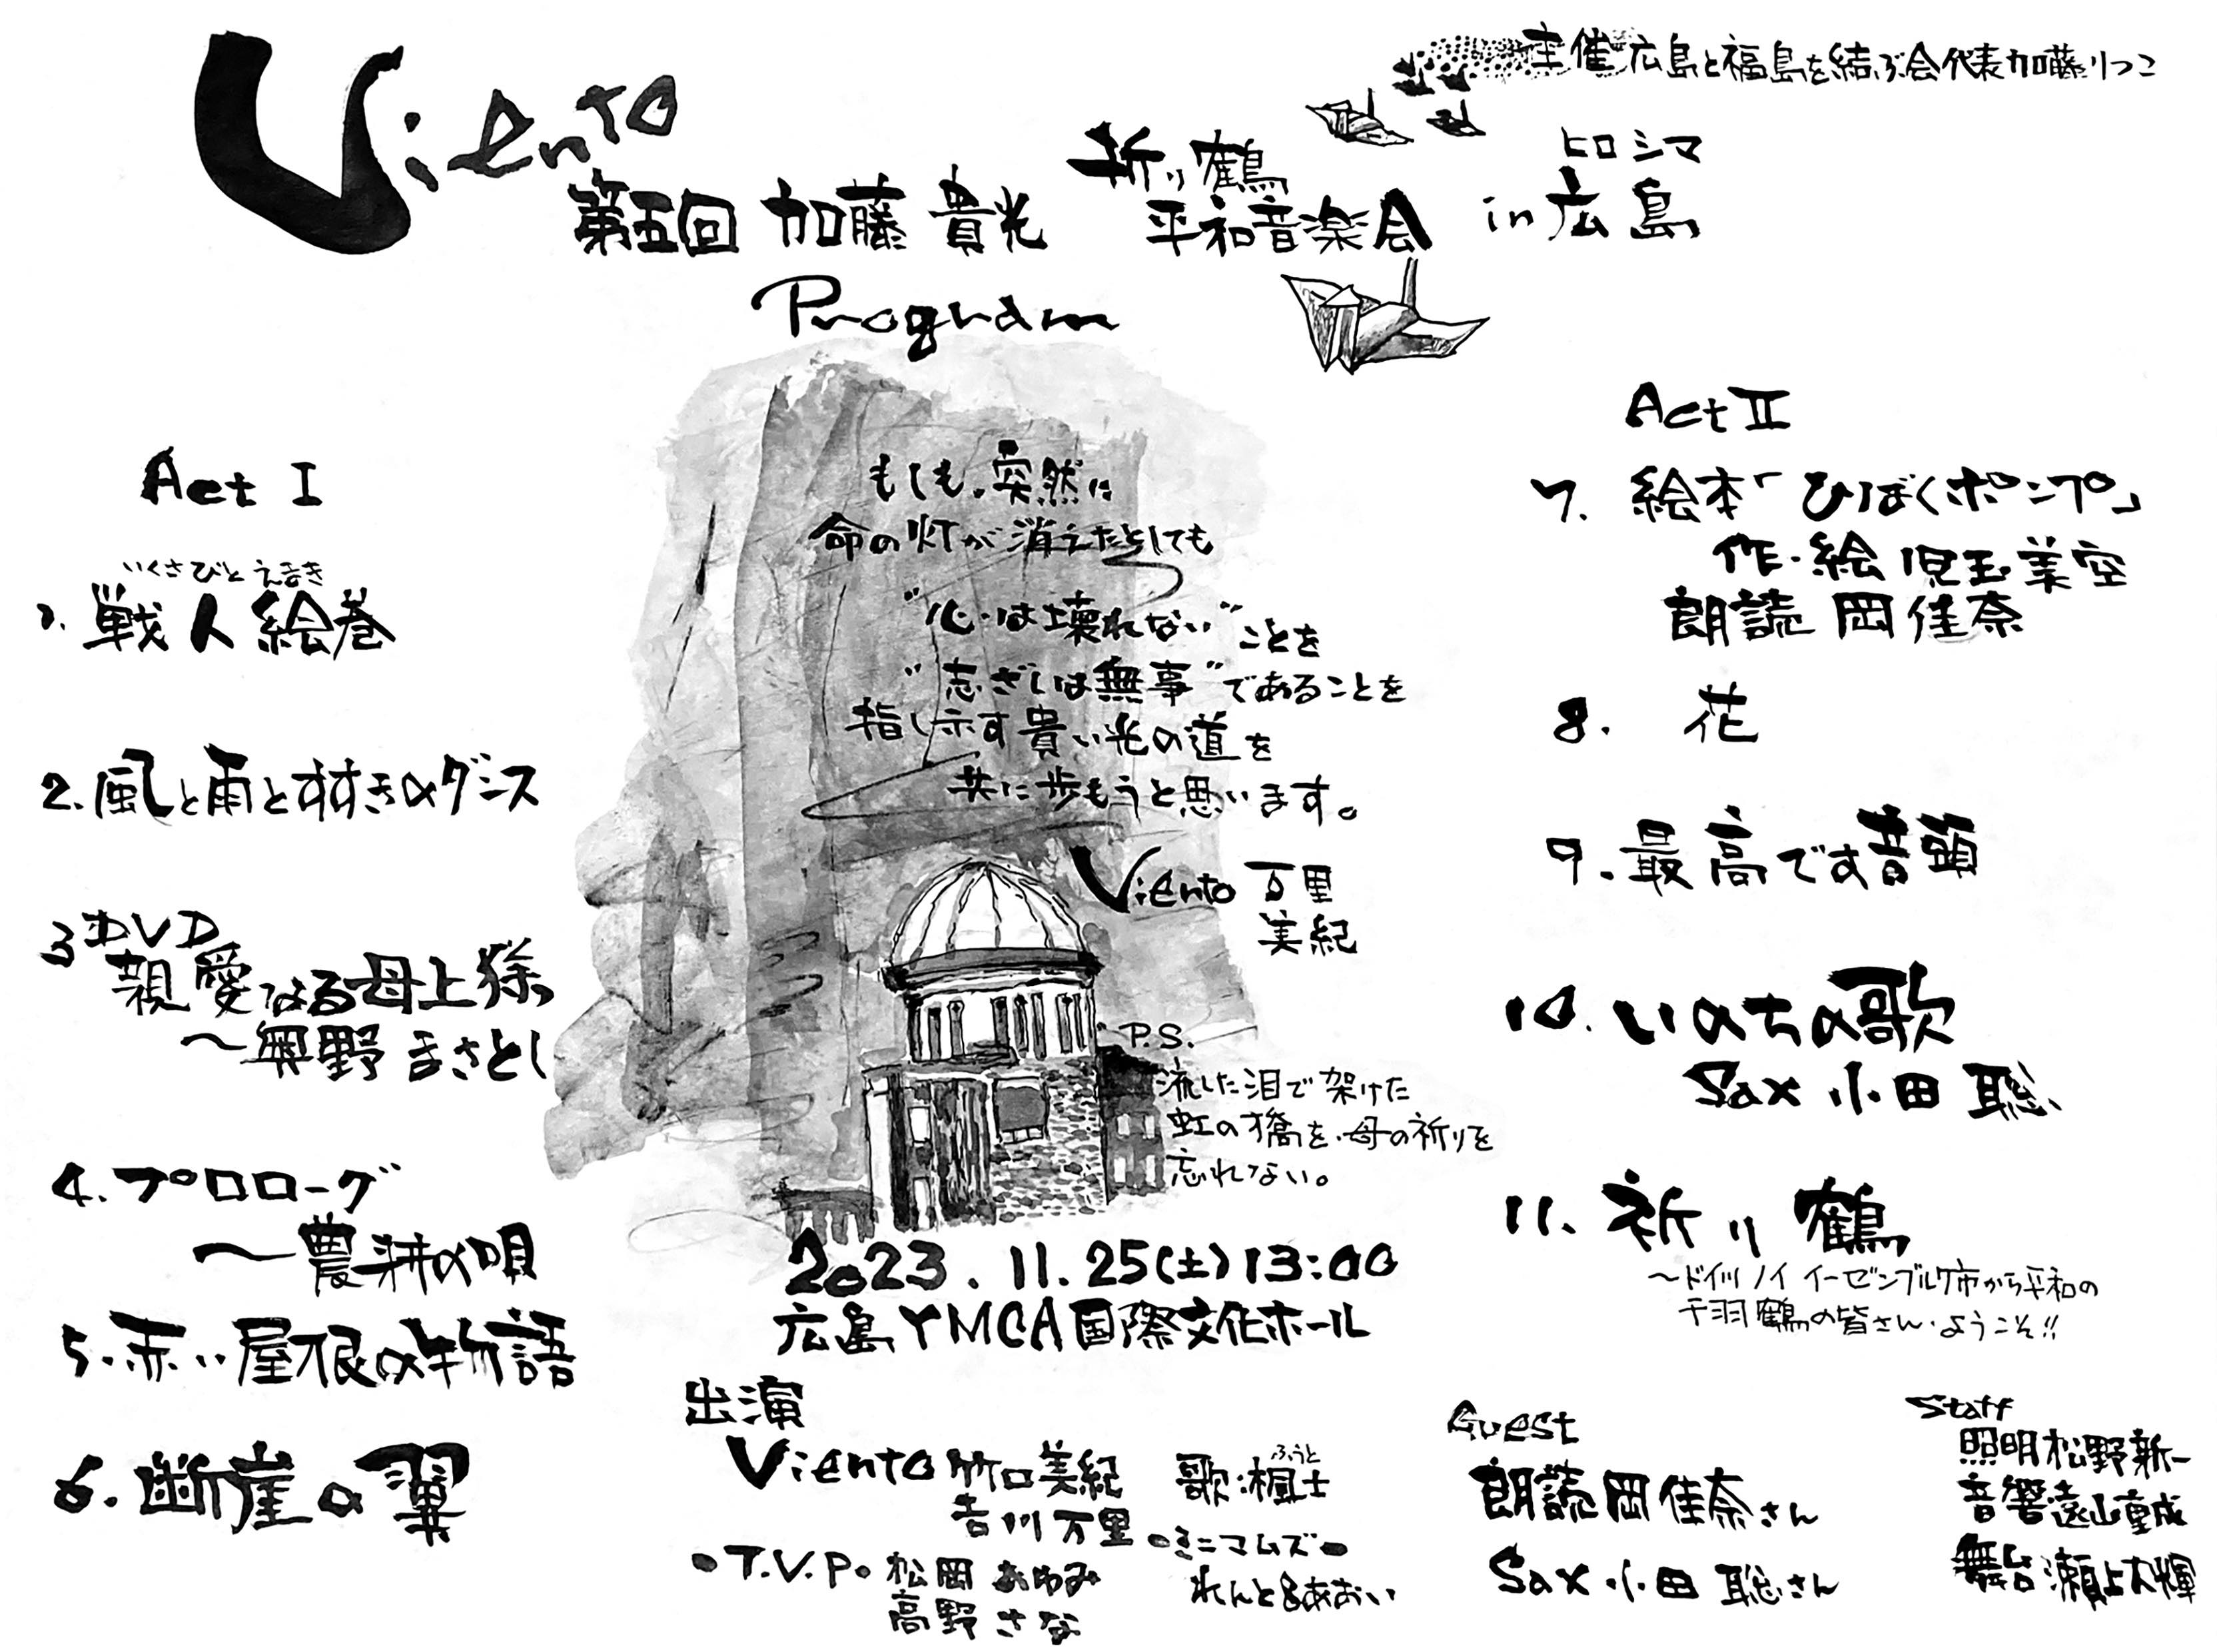 主催 広島と福島を結ぶ会代表加藤りつこ
Viento
第五回 加藤 貴光
折り鶴
平和音楽会
in 広島
ヒロシマ
Program
Act I
いくさびと えまき
1. 戦人絵巻
2. 風と雨とすすきのダンス
3 DVD
親愛なる母上様
～奥野まさとし
4. プロローグ
～農耕の唄
5. 赤い屋根の物語
6. 断崖の翼
もしも、突然に
命の灯が消えたとしても
“心は壊れない”ことを
“志ざしは無事”であることを
指し示す貴い光の道を
共に歩もうと思います。
Viento 万里
美紀
P.S.
流した泪で架けた
虹の橋を、母の祈りを
忘れない。
2023.11.25(土)13:00
広島YMCA国際文化ホール
Act II
7. 絵本「ひばくポンプ」
作・絵 児玉美空
朗読 岡佳奈
8. 花
9. 最高です音頭
10. いのちの歌
Sax 小田 聡
11. 祈り鶴
～ドイツ ノイ イーゼンブルク市から平和の
千羽鶴の皆さん、ようこそ!!
出演
Viento 竹口美紀
吉川万里
・T.V.P. 松岡 あゆみ
高野 さな
ふうと
歌:楓士
・ミニマムズ・
れんと&あおい
Guest
朗読 岡佳奈さん
Sax 小田 聡さん
Staff
照明 松野新一
音響 遠山重成
舞台 瀬上大輝